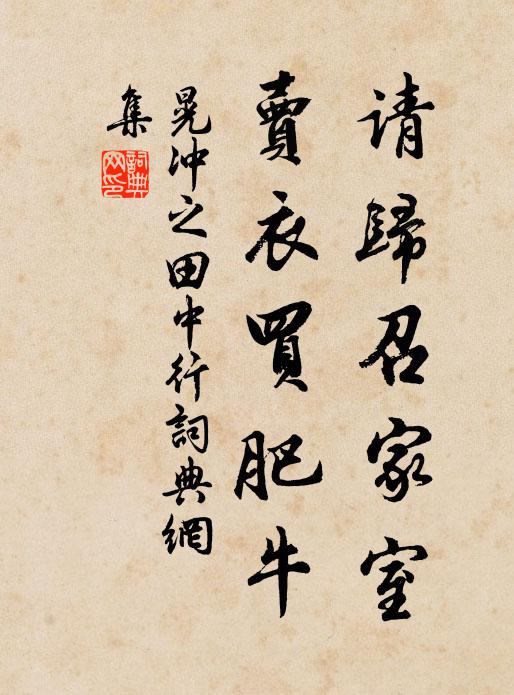 请歸召家室
賣衣買肥牛
晁冲之田中行詞典網
集
詞典
网印